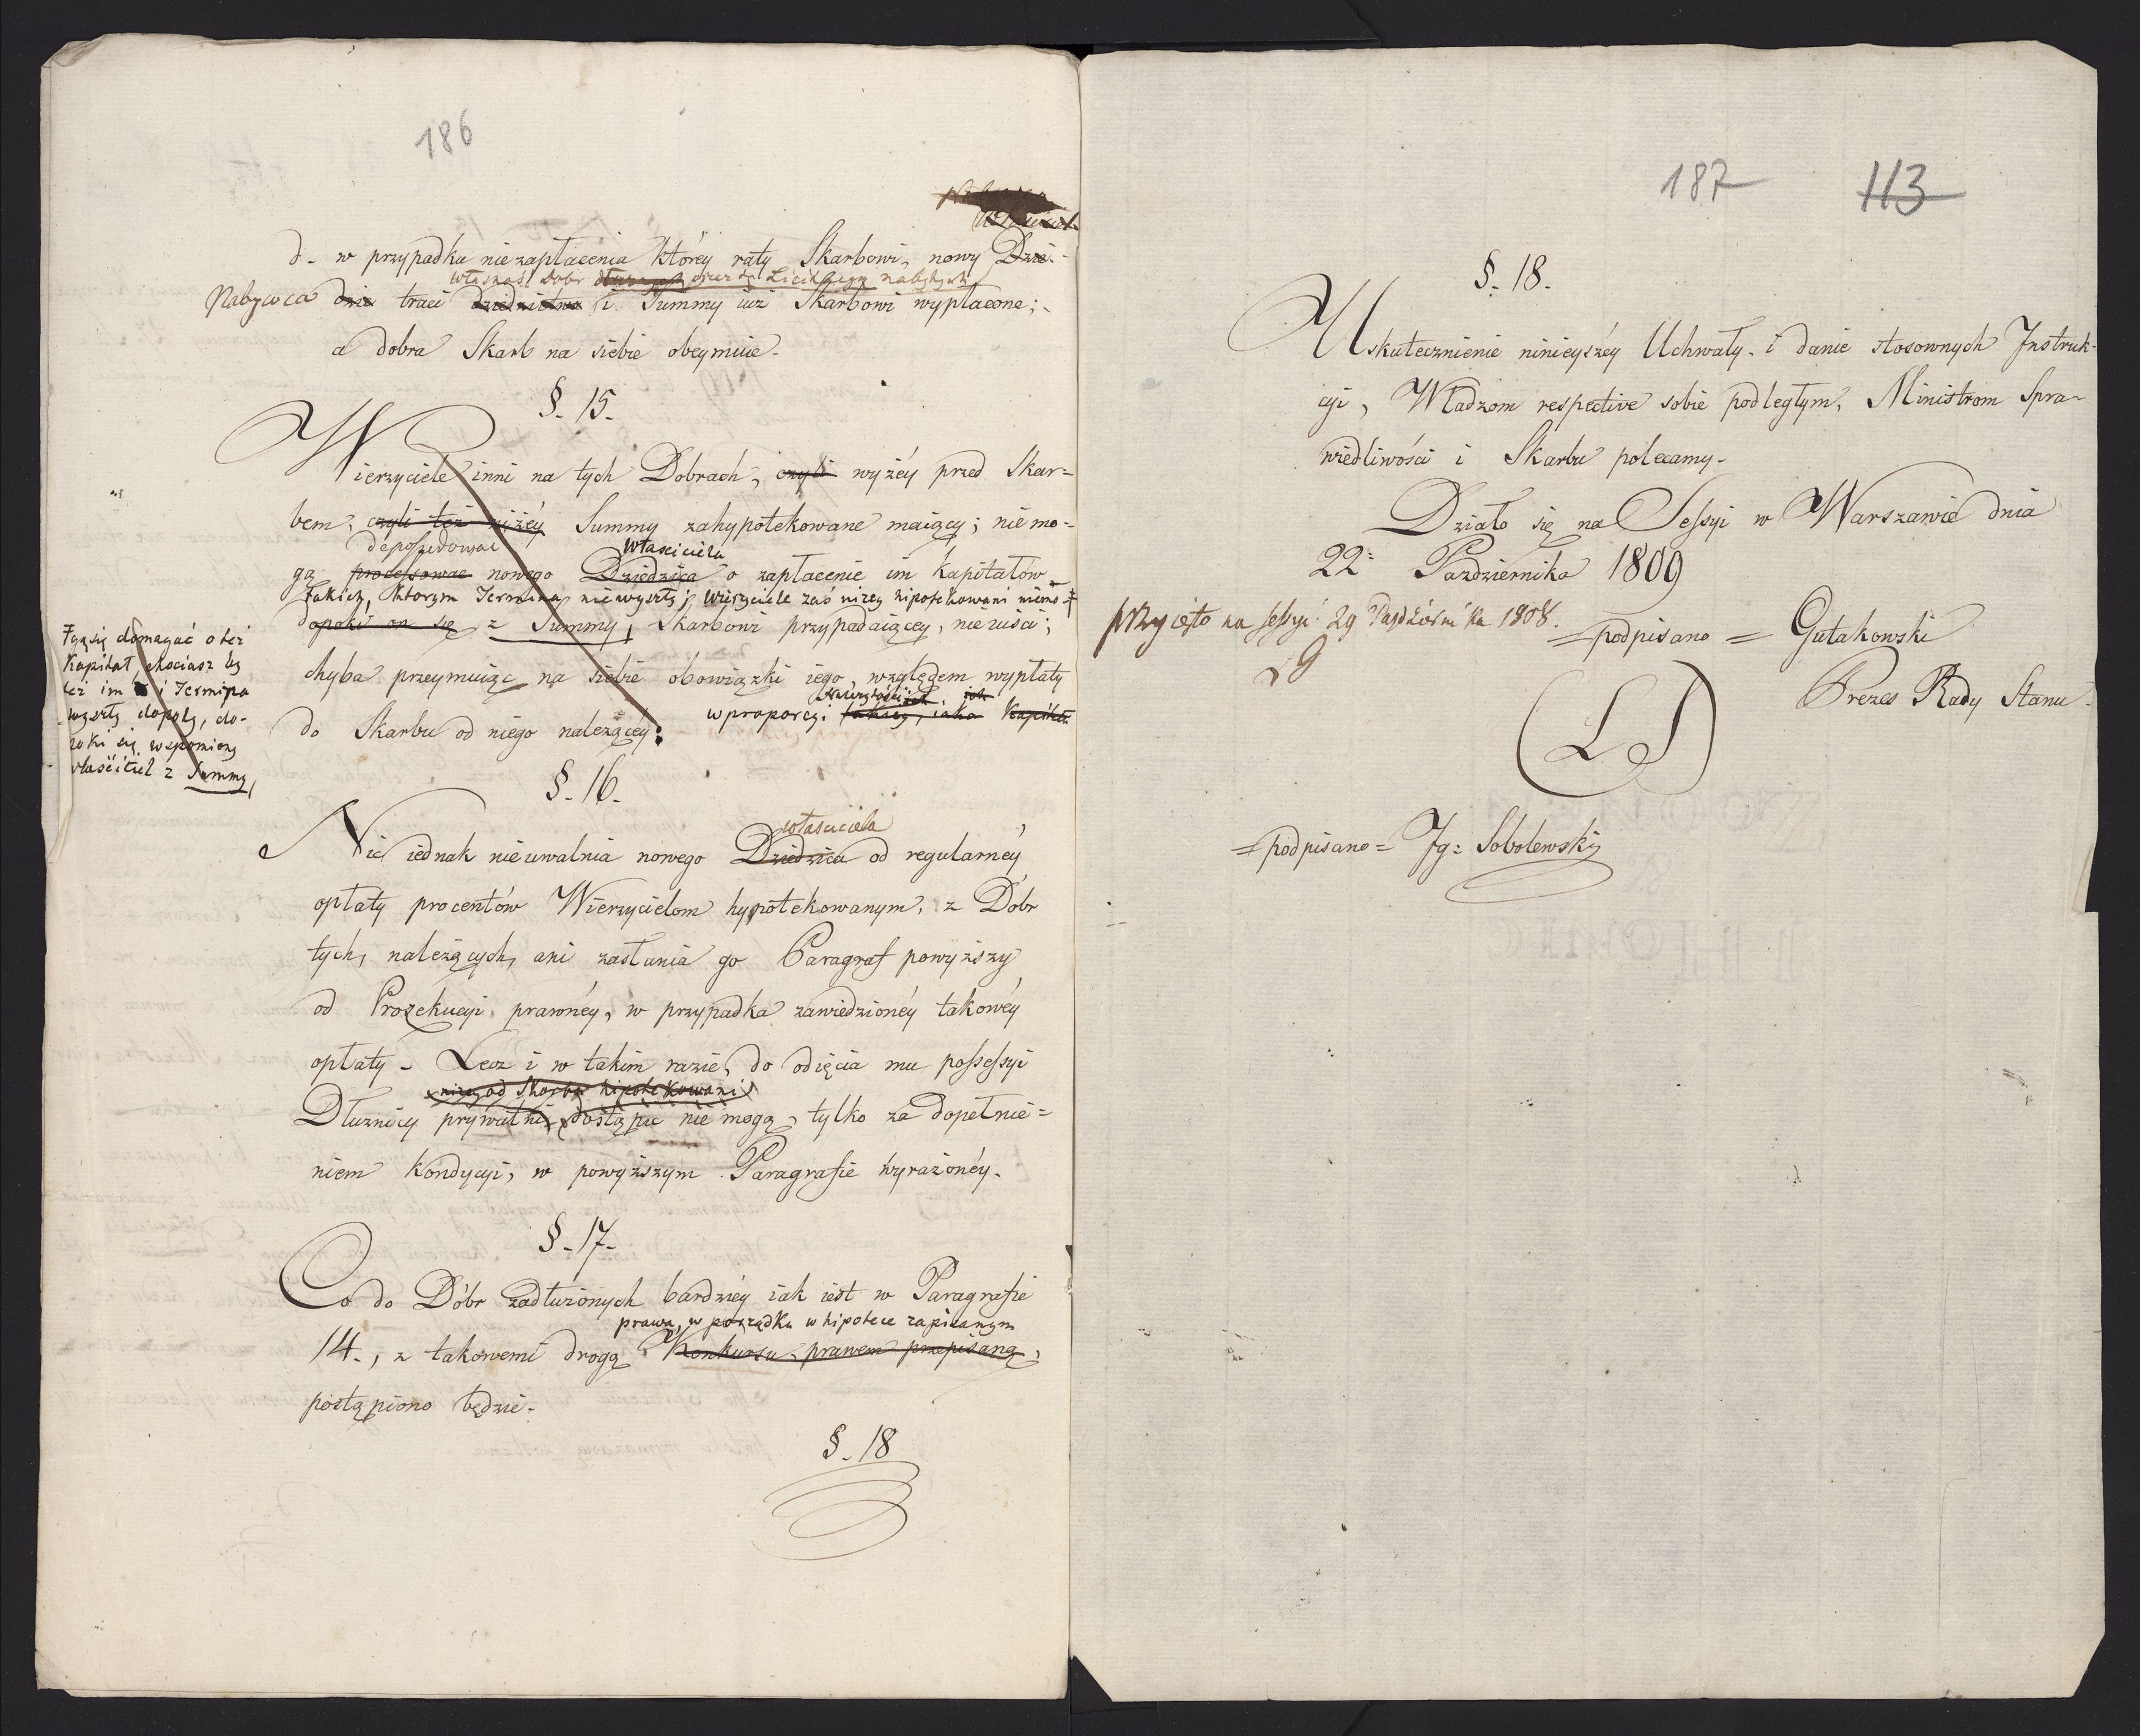 186
d. w przypadku niezapłacenia którey raty Skarbowi, nowy Dzie-
własność Dobr przez tę Licitacyą nabytych
Nabywca dzic traci dziedzictwo i Summy iuż Skarbowi wypłacone;
a dobra Skarb na siebie obeymuie.
§. 15.
Wierzyciele inni na tych Dobrach, czyli wyżéy przed Skar-
bem, czyli też niżéy Summy zahypotekowane maiący; nie mo-
deposzedować właściciela
gą processować nowego Dziedzica o zapłacenie im Kapitałów
takich, ktorym Termina niewyszły; wierzyciele zaś niżey hipotekowani niemo-
dopoki on się z Summy, Skarbowi przypadaiącey, nie uiści;
chyba przeymuiąc na siebie obowiązki iego, względem wypłaty
do Skarbu od niego należącéy: w proporcyi takiey, iaka Kapitał
gą się domagać o też
Kapitał, chociasz by
też im i Termina
wyszły dopoty, do-
poki się wspomiony
właściciel z Summy,
§. 16.
właściciela
Nic iednak nieuwalnia nowego Dziedzica od regularnéy
opłaty procentów Wierzycielom hypotekowanym, z Dóbr
tych, należących, ani zasłania go Paragraf powyższy
od Prozekucyi prawnéy, w przypadku zawiedzionéy takowéy
opłaty. Lecz i w takim razie, do odięcia mu possessyi
niżey od Skarbu hipotekowani
Dłużnicy prywatni dostąpić nie mogą, tylko za dopełnie-
niem Kondycyi, w powyższym Paragrafie wyrażonéy.
§. 17.
Co do Dóbr zadłużonych bardziéy iak iest w Paragrafie
prawa, w porządku w hipotece zapisanym
14., z takowemi drogą Konkursu prawem przepisaną,
postąpiono będzie.
§. 18
187 113
§. 18.
Uskutecznienie ninieyszéy Uchwały i danie stosownych Instruk-
cyi, Władzom respective sobie podległym, Ministrom Spra-
wiedliwości i Skarbu polecamy.
Działo się na Sessyi w Warszawie dnia
22: Pazdziernika 1809
przyięto na sessyi 29 Pazdziernika 1808.
=podpisano= Gutakowski
Prezes Rady Stanu.
(LS)
=podpisano= Ig: Sobolewski